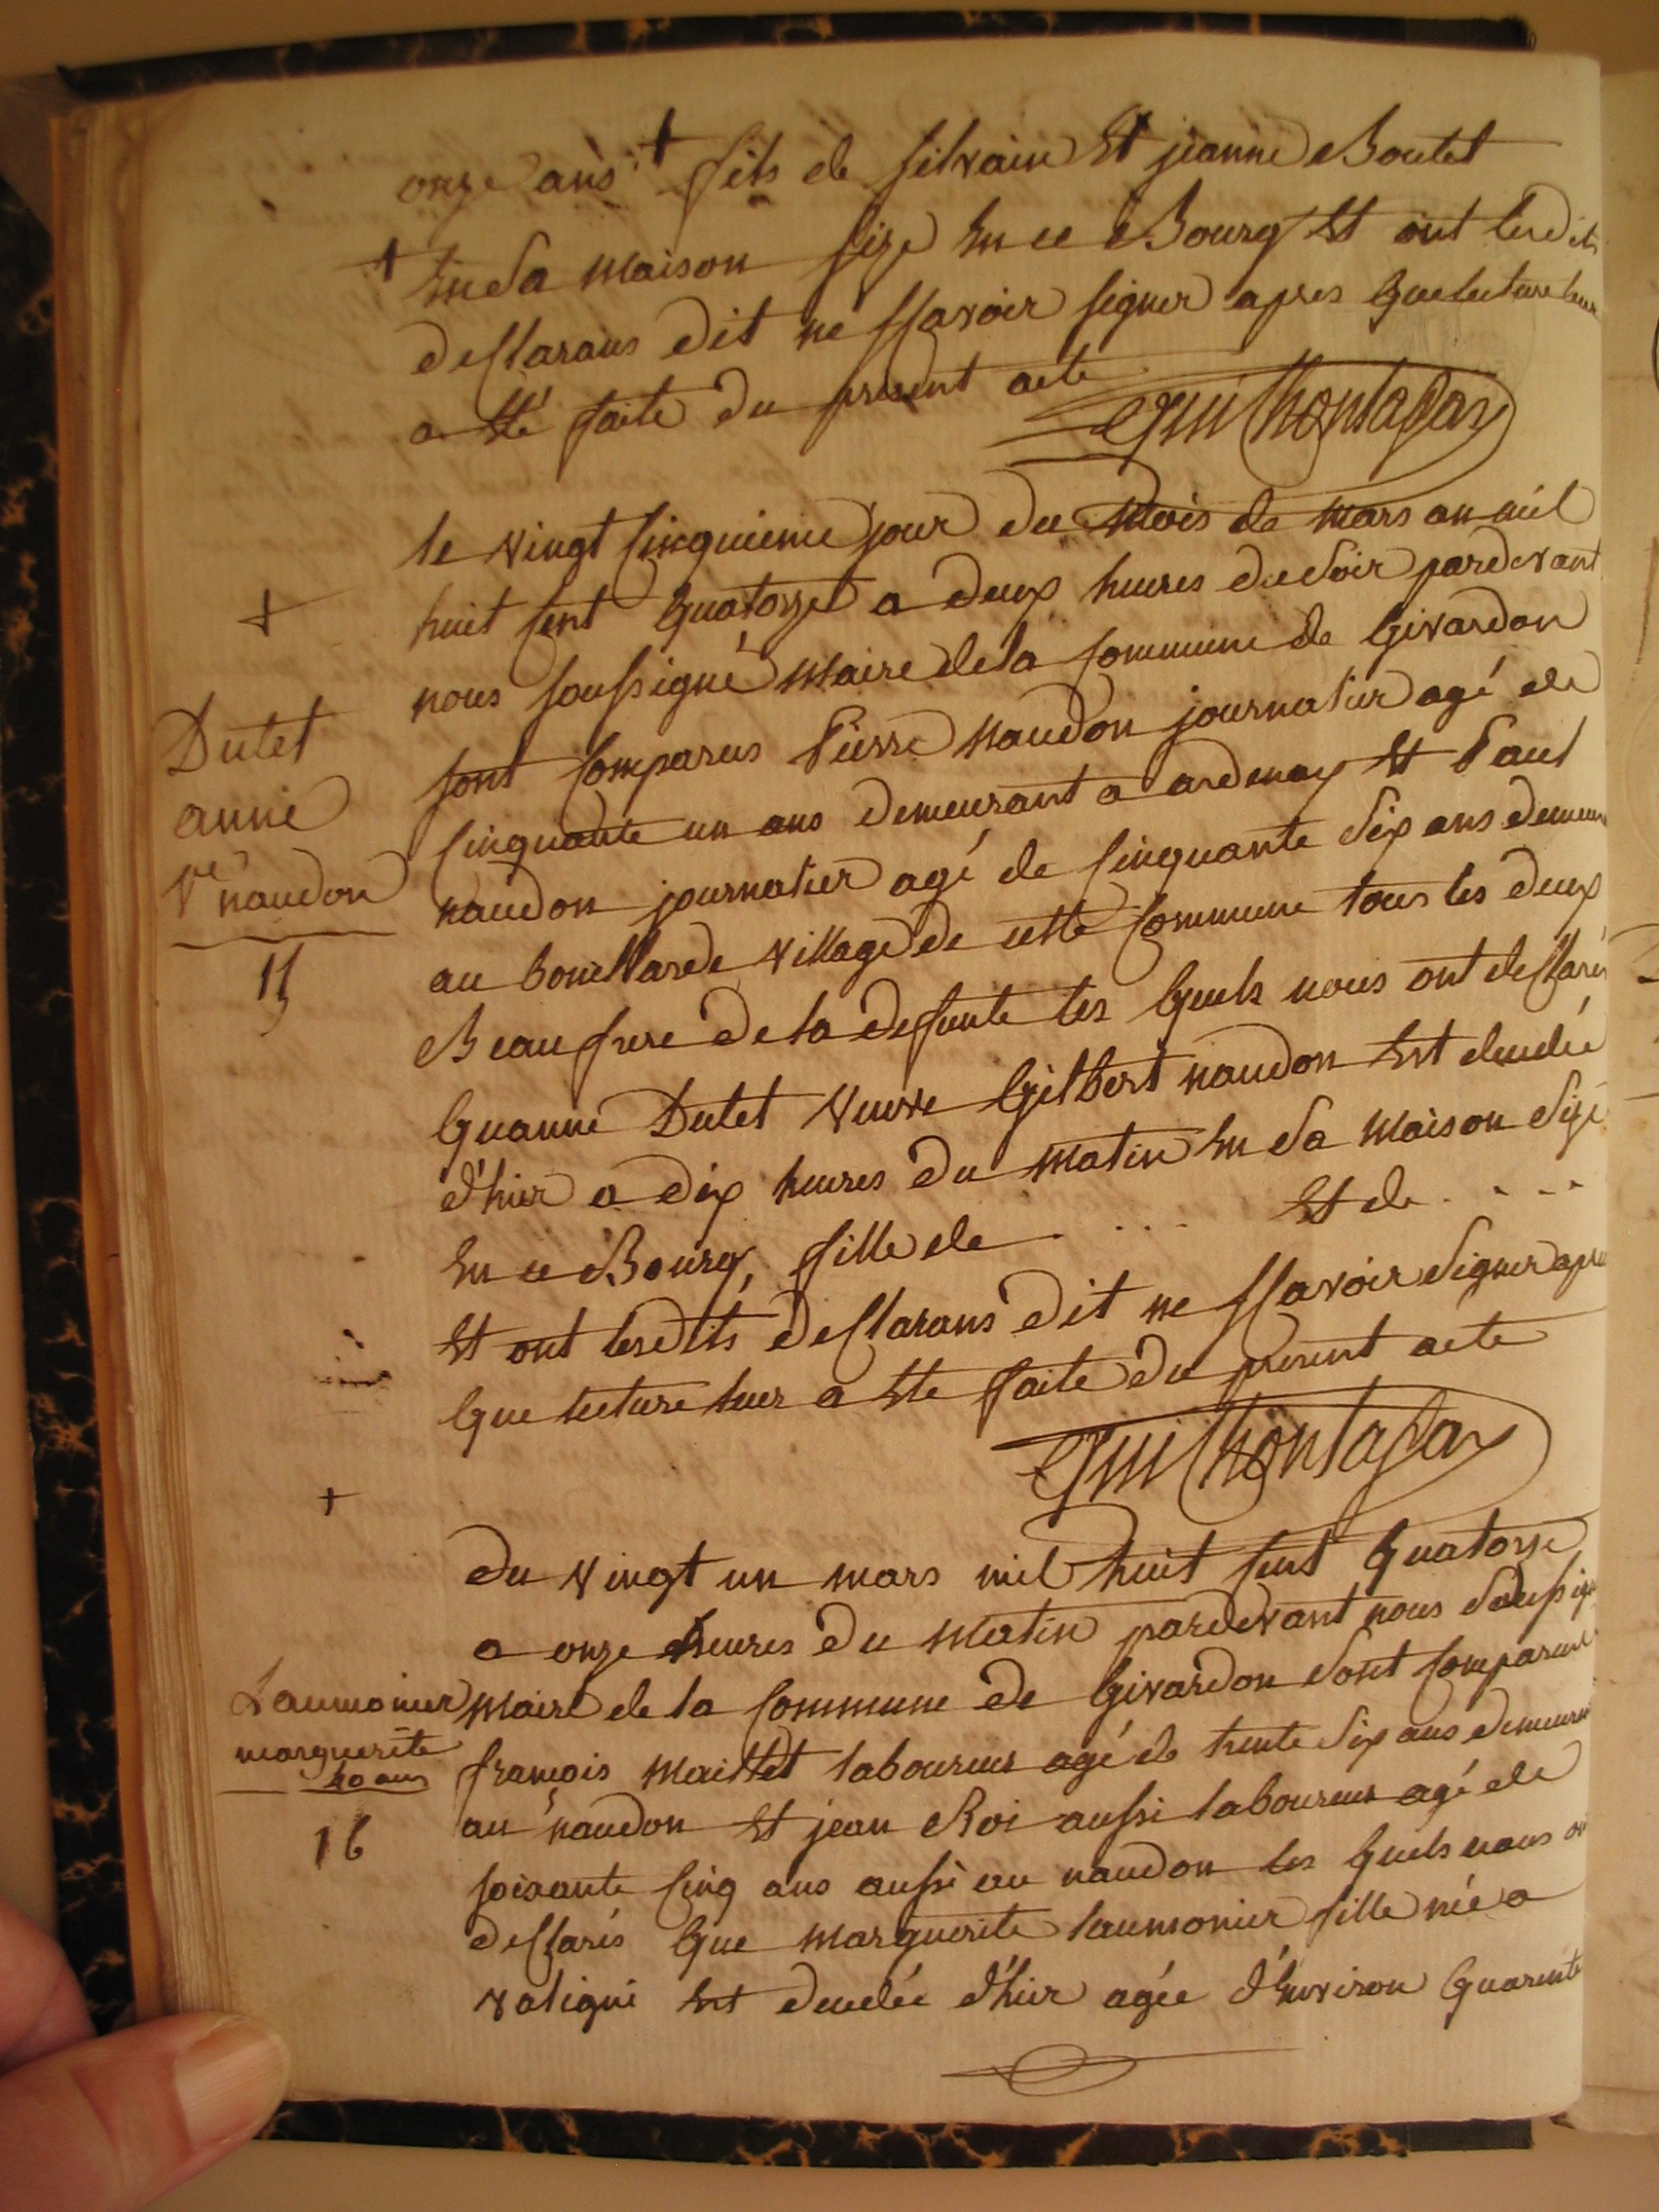 onze ans + fils de silvain Et jeanne Boutet
+ En sa maison size En ce Bourg Et ont lesdits
desclarans dit ne sçavoir signer apres que lecture leur
a Eté faite du present acte
le vingt cinquieme jour du mois de mars an mil
+
huit cent quatorze a deux heures du soir pardevant
nous soussigné maire de la commune de Givardon
Dutet
anne
Ve naudon
15
sont comparus Pierre naudon journalier agé de
cinquante un ans demeurant a ardenay Et Paul
naudon journalier agé de cinquante six ans demeur
au bouillarde village de cette commune tous les deux
Beau frere de la defunte les quels nous ont desclarés
quanne Dutet veuve Gilbert naudon Est decedée
d'hier a dix heures du matin En sa maison size
En ce Bourg, fille de . ... Et de . . . .
Et ont lesdits desclarans dit ne sçavoir signer apres
que lecture leur a Ete faite du present acte
+
Du vingt un mars mil huit cent quatorze
a onze heures du matin pardevant nous soussigné
Laumonier
marguerite
40 ans
16
maire de la commune de Givardon sont comparus
françois maillet laboureur agé de trente six ans demeurant
au naudon Et jean Roi aussi laboureur agé de
soixante cinq ans aussi au naudon les quels nous on
desclarés que marguerite laumonier fille née a
valigni Est decedée d'hier agée d'Environ quarente